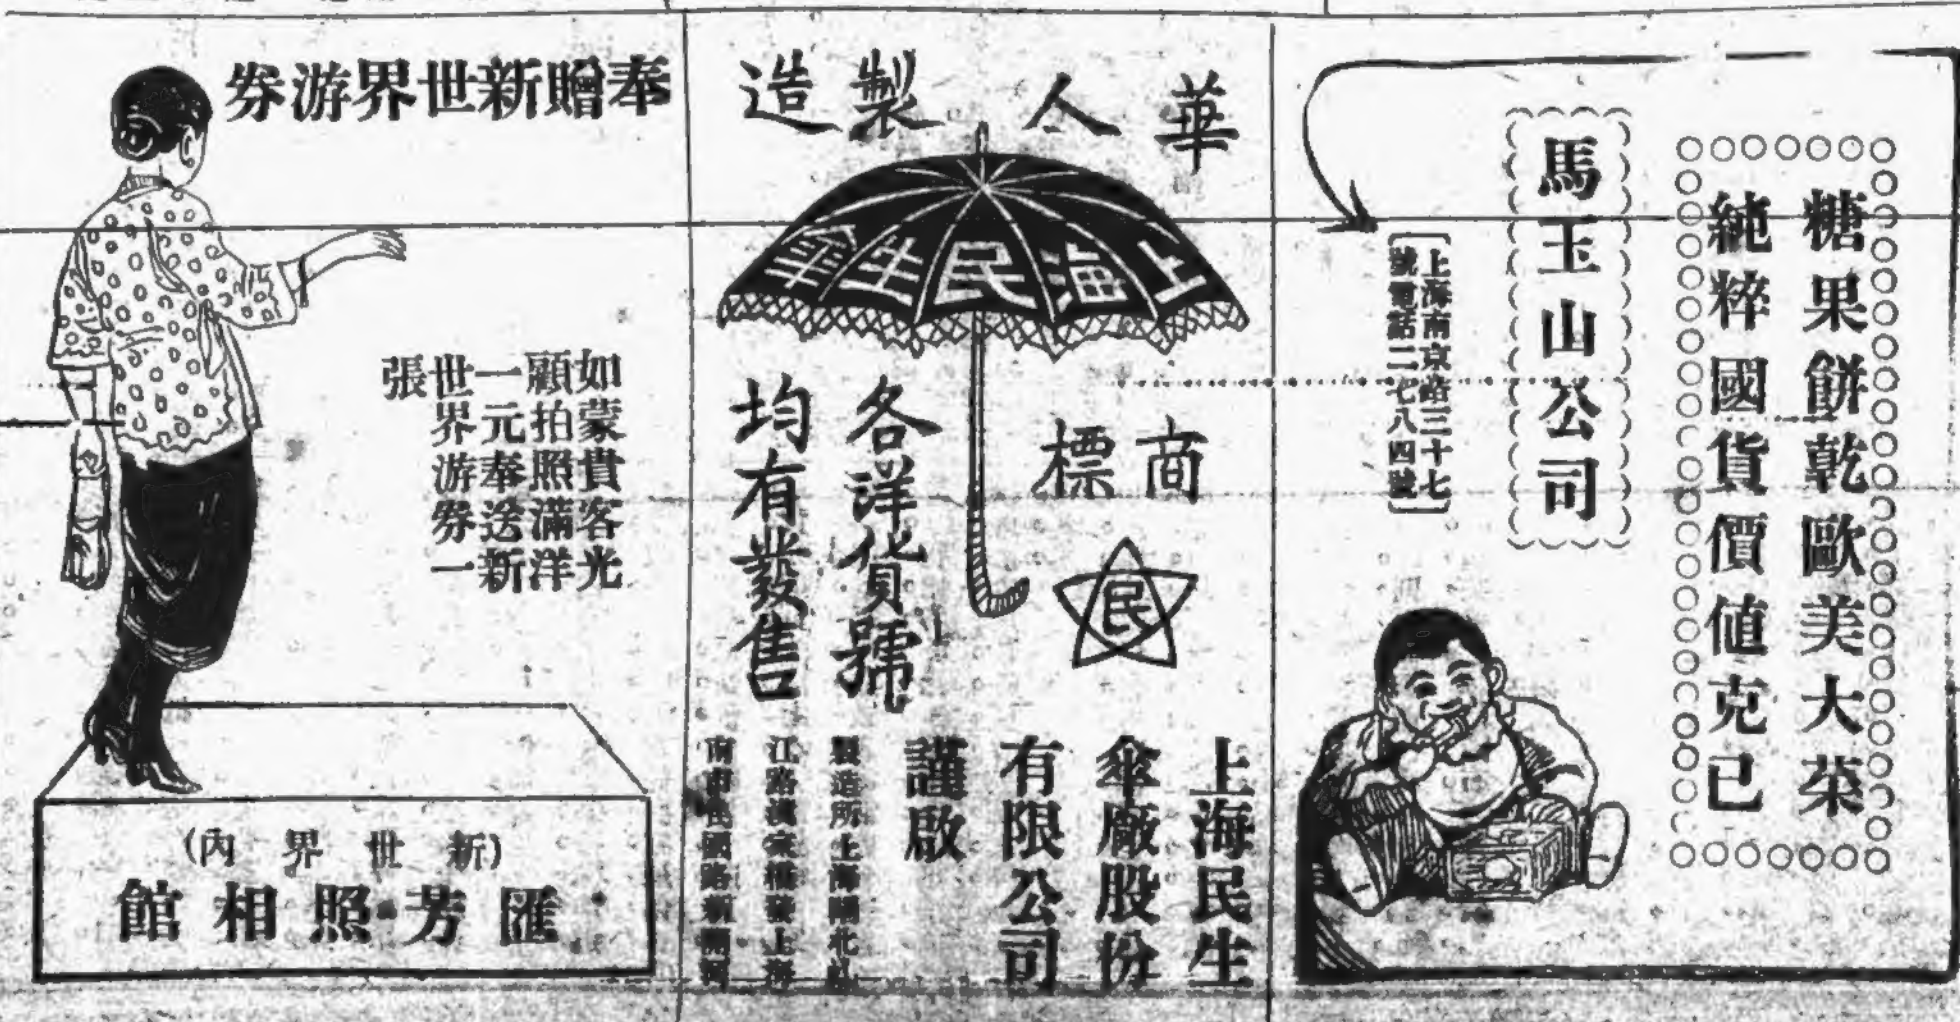 糖果餅乾歐美大菜
純粹國貨價值克已
馬玉山公司
上海南京路三十七
號電話二七八四號
華人製造
上海民生傘
商標
民
各洋貨號
均有發售
上海民生
傘廠股份
有限公司
謹啟
製造所上海閘北
江路
奉贈新世界游券
如蒙貴客光
顧拍照滿洋
一元奉送新
世界游券一
張
(新世界內)
匯芳照相館